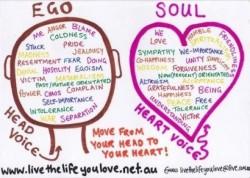 EGO
ME ANGER BLAME
COLDNESS
STUCK PRIDE
MADNESS JEALOUSY
RESENTMENT FEAR DOING
DENIAL HOSTILITY EGOISM
VICTIM MATERIALISM
PAST/FUTURE ORIENTATED
POWER CRAVES COMPLAIN
SELF-IMPORTANCE
INTOLERANCE
WAR SEPARATION
HEAD VOICE
SOUL
WE
HUMBLE
LOVE
SYMPATHY WE-IMPORTANCE
COMPASSION UNITY
WISDOM FORGIVENESS
NOW(PRESENT) ORIENTATED
ALTRUISM ACCEPTANCE
GRATEFULNESS BEING
HAPPINESS
PEACE FREE
TOLERANCE
UNDERSTANDING
VICTOR
HEART VOICE
MOVE FROM
YOUR HEAD TO
YOUR HEART!
www.livethelifeyoulove.net.au